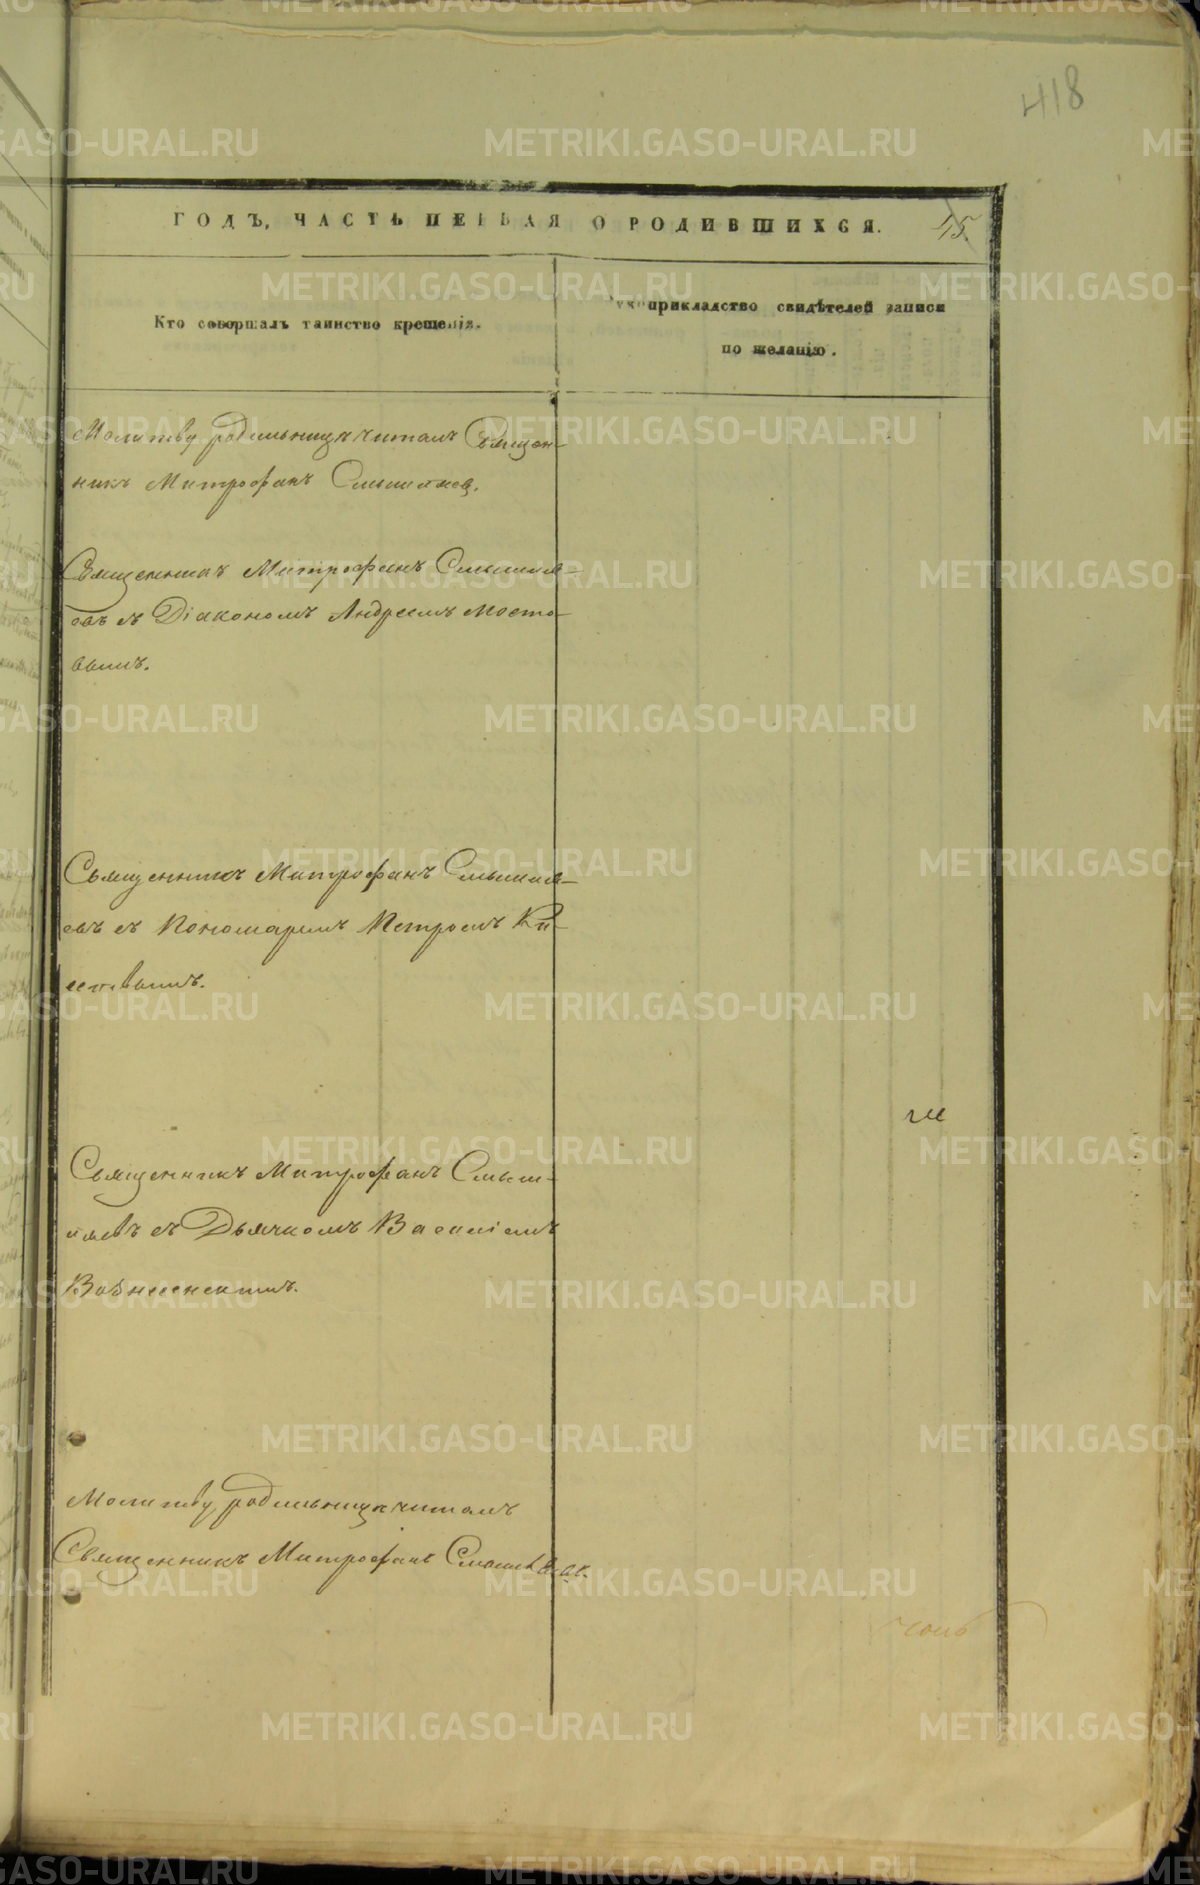 418
ГОДЪ, ЧАСТЬ ПЕРВАЯ О РОДИВШИХСЯ. 45.
Кто совершалъ таинство крещенія.
Рукоприкладство свидѣтелей записи
по желанію.
Молитву родильницѣ читалъ Священ-
никъ Митрофанъ Смышляев.
Священникъ Митрофанъ Смышля-
евъ съ Діакономъ Андреемъ Мосто-
вымъ.
Священникъ Митрофанъ Смышля-
евъ съ Пономаремъ Петромъ
Священникъ Митрофанъ Смыш-
ляевъ съ Дьячкомъ Василіемъ
Вознесенскимъ.
Молитву родильницѣ читалъ
Священникъ Митрофанъ
METRIKI.GASO-URAL.RU